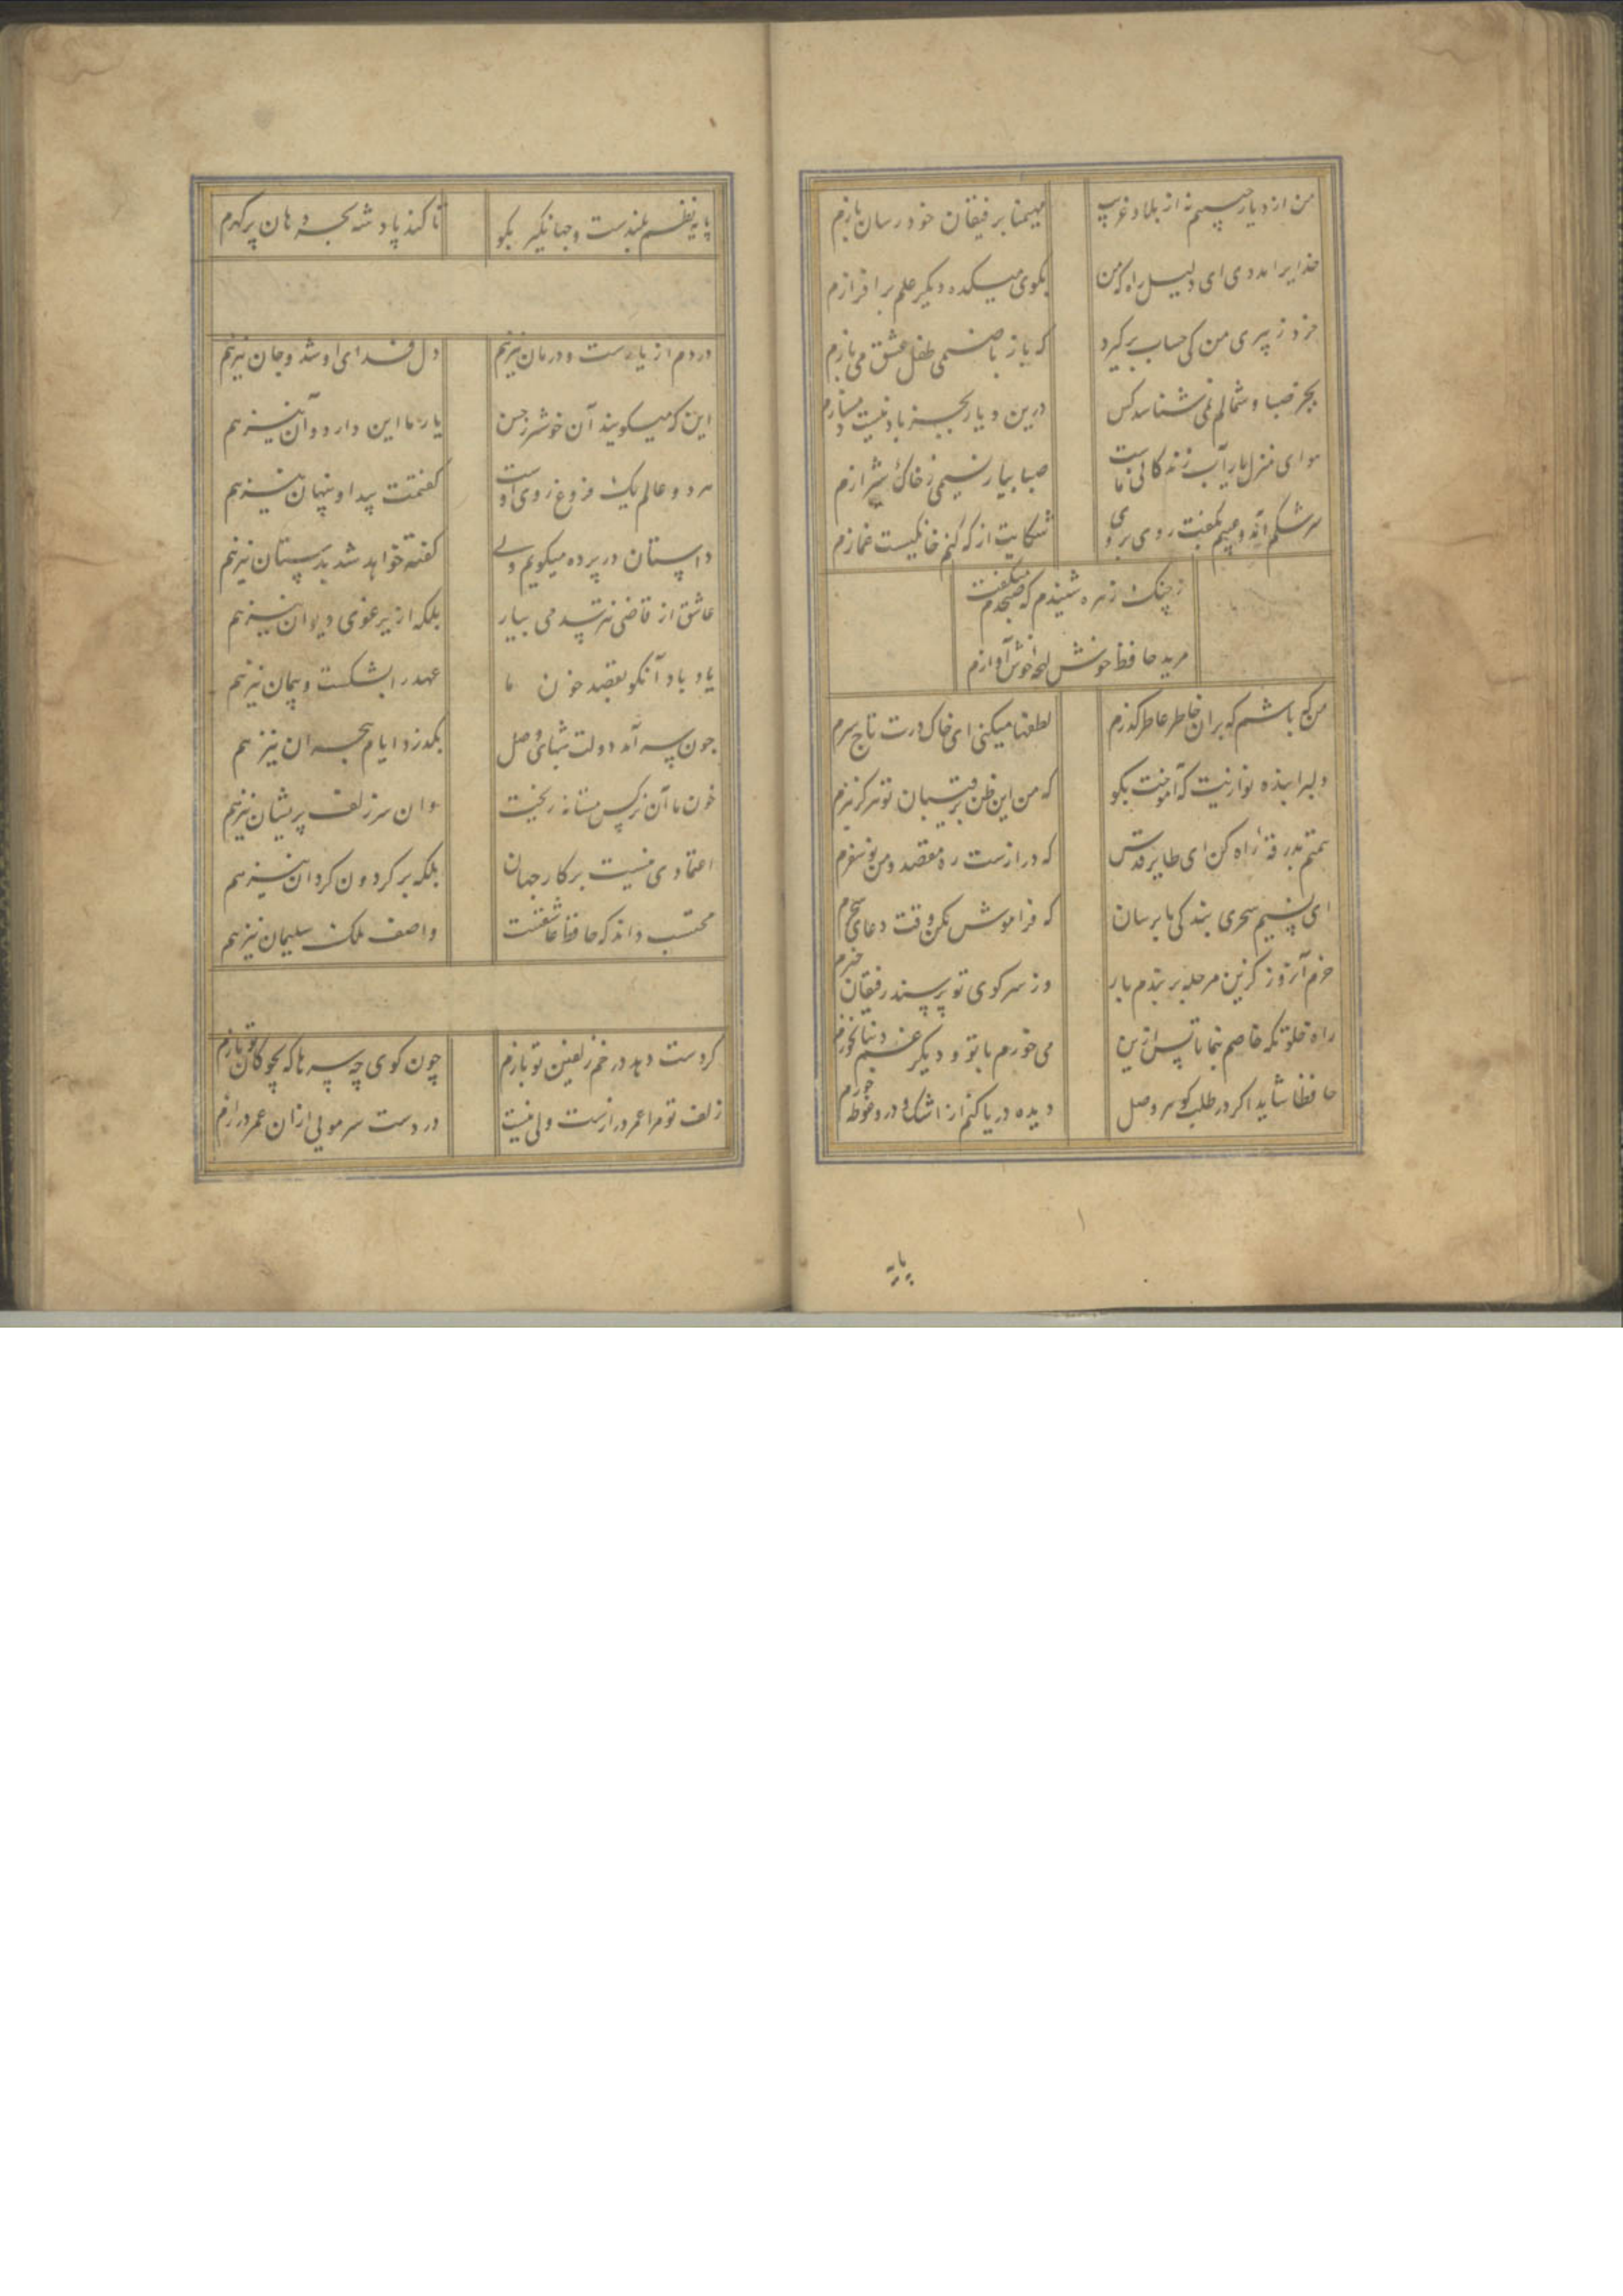 من از دیار حبیبم نه از بلاد غریب مهیمنا برفیقان خود رسان بازم
خدایرا مددی ای دلیل راه که من بکوی میکده دیگر علم برافرازم
خرد ز پیری من کی حساب برگیرد که باز با صنمی طفل عشق می بازم
بجز صبا و شمالم نمی شناسد کس درین دیار بجز باد نیست دمسازم
هوای منزل یار آب زندگانی ماست صبا بیار نسیمی ز خاک شیرازم
سرشکم آمد و عیبم بگفت روی بروی شکایت از که کنم خانگیست غمازم
ز چنگ زهره شنیدم که صبحدم میگفت
مرید حافظ خوش لهجه خوش آوازم
من که باشم که بران خاطر عاطر گذرم لطفها میکنی ای خاک درت تاج سرم
دلبرا بنده نوازیت که آموخت بگو که من این ظن برقیبان تو هرگز نبرم
همتم بدرقه راه کن ای طایر قدس که درازست ره مقصد و من نوسفرم
ای نسیم سحری بندگی ما برسان که فراموش مکن وقت دعای سحرم
خرم آنروز کزین مرحله بربندم بار وز سر کوی تو پرسند رفیقان خبرم
راه خلوتگه خاصم بنما تا پس ازین می خورم با تو و دیگر غم دنیا نخورم
حافظا شاید اگر در طلب گوهر وصل دیده دریا کنم از اشک و درو غوطه خورم
پایه
پایه نظم بلندست و جهانگیر بگو تا کند پادشه بحر دهان پر گهرم
دردم از یارست و درمان نیز هم دل فدای او شد و جان نیز هم
این که میگویند آن خوشتر ز حسن یار ما این دارد و آن نیز هم
هر دو عالم یک فروغ روی اوست گفتمت پیدا و پنهان نیز هم
داستان در پرده میگویم ولی گفته خواهد شد بدستان نیز هم
عاشق از قاضی نترسد می بیار بلکه از یرغوی دیوان نیز هم
یاد باد آنکو بقصد خون ما عهد را بشکست و پیمان نیز هم
چون سر آمد دولت شبهای وصل بگذرد ایام هجران نیز هم
خون ما آن نرگس مستانه ریخت وان سر زلف پریشان نیز هم
اعتمادی نیست بر کار جهان بلکه بر گردون گردان نیز هم
محتسب داند که حافظ عاشقست واصف ملک سلیمان نیز هم
گر دست دهد در خم زلفین تو بازم چون گوی چه سرها که بچوگان تو بازم
زلف تو مرا عمر درازست ولی نیست در دست سر مویی ازان عمر درازم